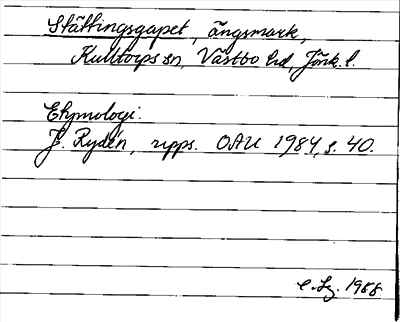 Stättingsgapet, ängsmark,
Kulltorps sn, Västbo hd, Jönk. l.
Etymologi.
J. Rydén, upps. OAU 1984, s. 40.
1988